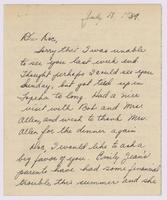 July 18, 1939
Dear Roe,
Sorry that I was unable
to see you last week end.
Thought perhaps I would see you
Sunday, but got tied up in
Topeka to long. Had a nice
visit with Bob and Mrs.
Allen, and went to thank Mrs.
Allen for the dinner again
Roe, I would like to ask a
big favor of you. Emily Jean's
parents have had some financial
trouble this summer and she